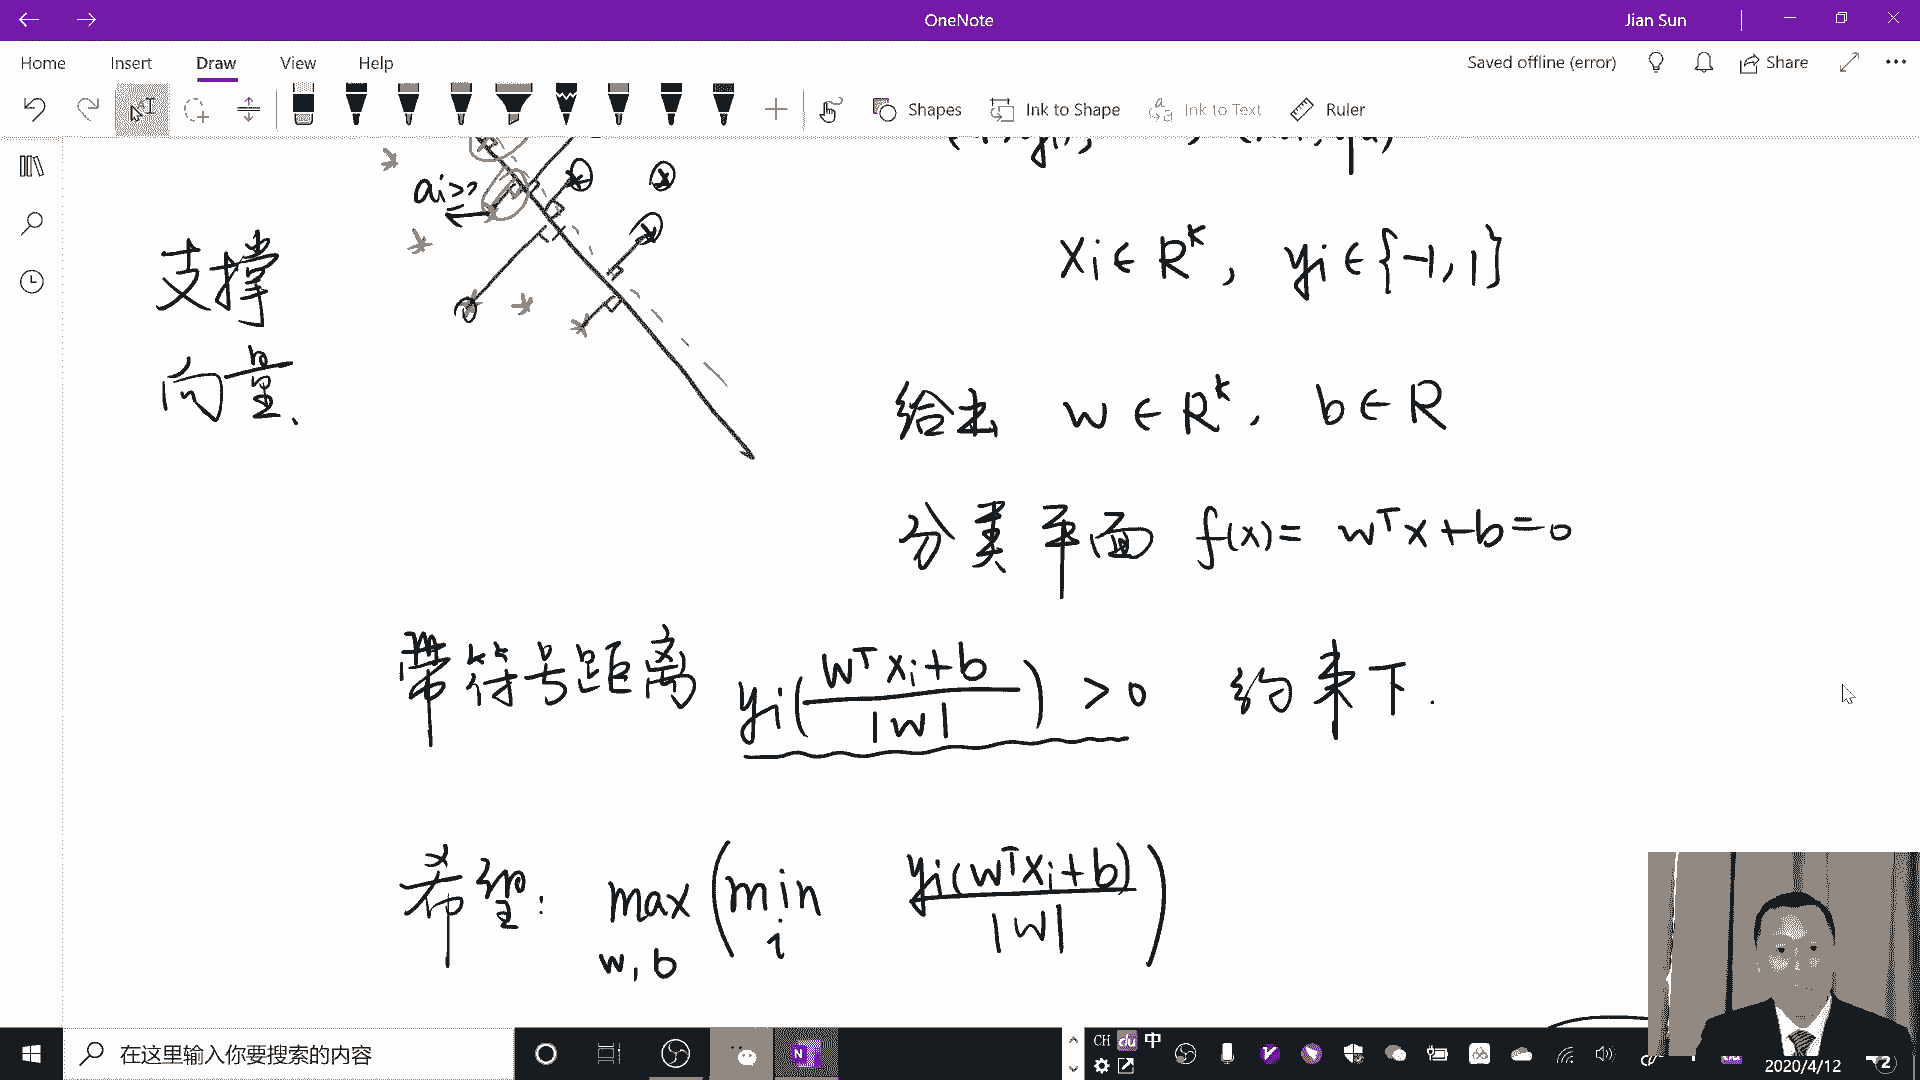 OneNote
Jian Sun
Home Insert Draw View Help
Saved offline (error)
Share
Shapes
Ink to Shape
Ink to Text
Ruler
ai>>
xi ∈ R^k, yi ∈ {-1, 1}
支撑
向量.
给出 w ∈ R^k. b ∈ R
分类平面 f(x) = w^T x + b = 0
带符号距离 yi( (w^T xi + b) / |w| ) > 0 约束下.
希望: max w, b ( min i yi(w^T xi + b) / |w| )
在这里输入你要搜索的内容
CH du 中
2020/4/12
2